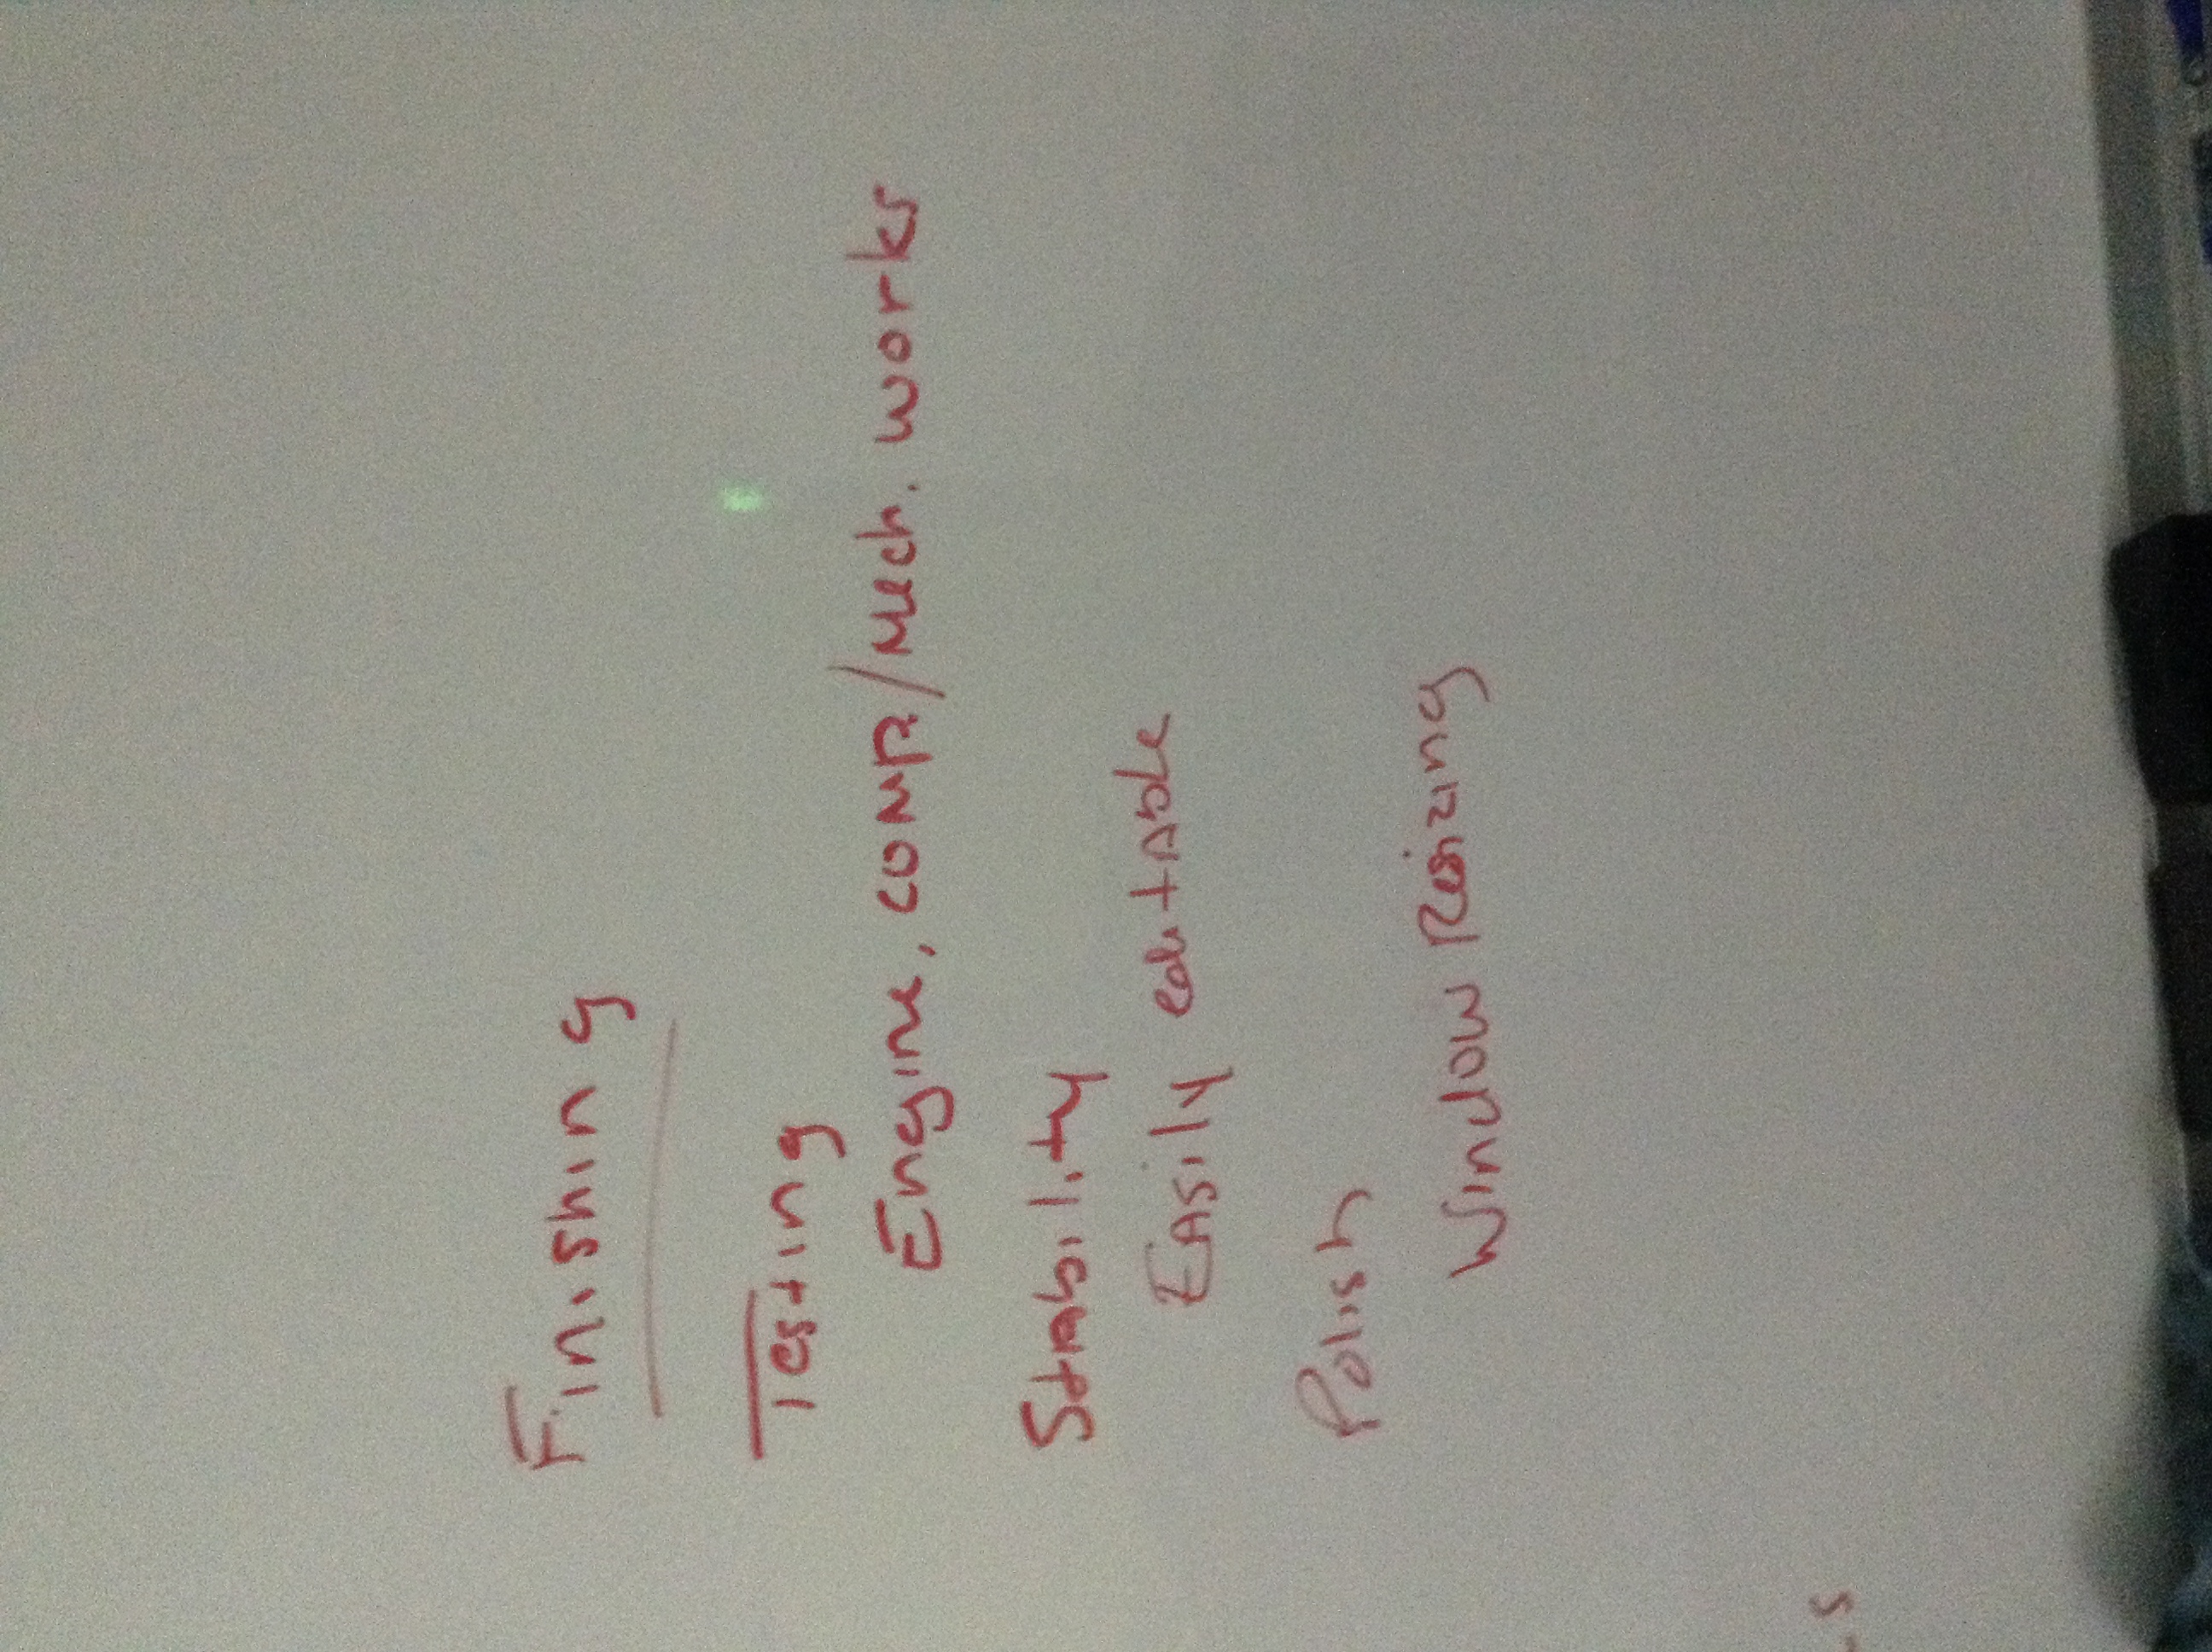 Finishing
Testing
Engine, comp./Mech. works
Stability
Easily editable
Polish
Window Resizing
s